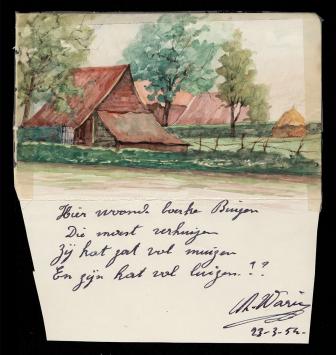 Hier woonde boerke Buigen
Die moest verhuizen
Zij hat gat vol muizen
En zijn hat vol luizen.??
23-3-54.